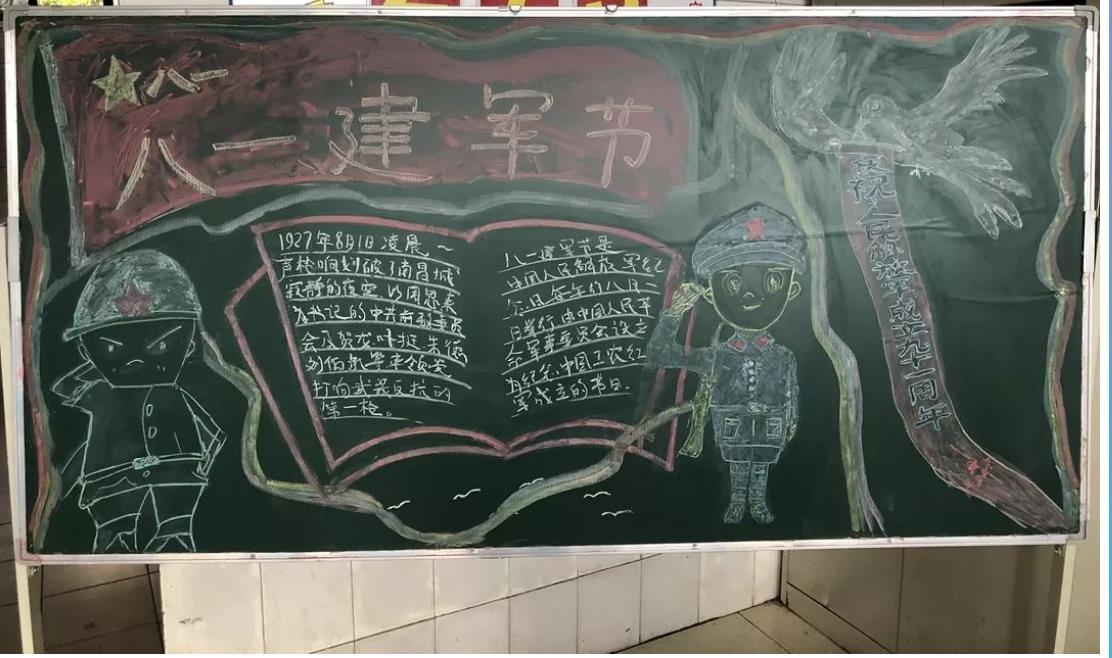 八一
八一建军节
1927年8月1日凌晨一
声枪响划破了南昌城
寂静的夜空 以周恩来
为书记的中共前敌委员
会及贺龙 叶挺 朱德
刘伯承等率领
打响武装反抗的
第一枪。
八一建军节是
中国人民解放军纪
念日 每年的八月一
日举行 由中国人民革
命军事委员会设立
为纪念 中国工农红
军成立的节日.
庆祝人民解放军成立九十一周年